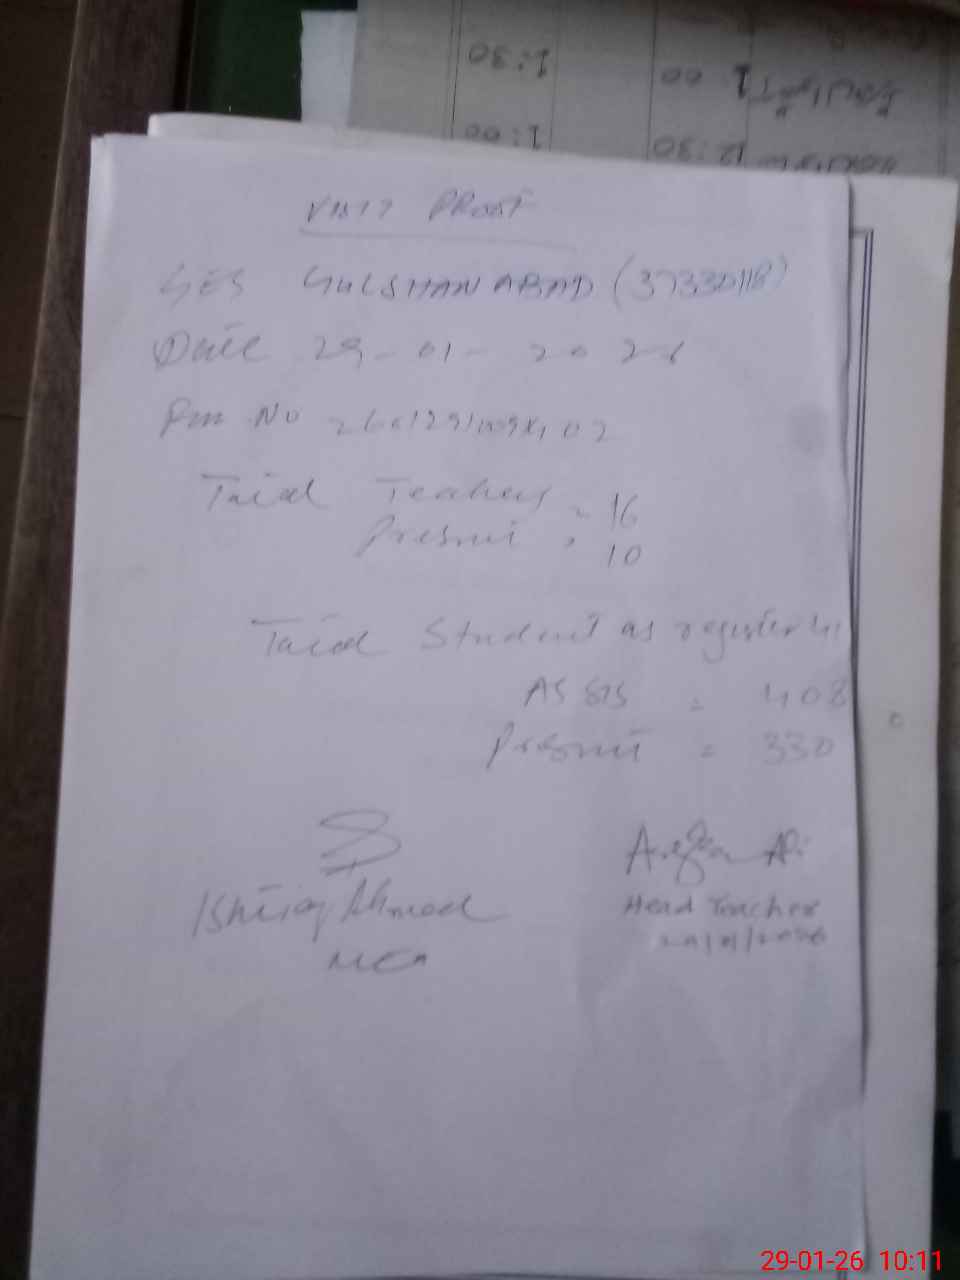 1:30
1:00
1:00
12:30
VISIT PROOF
GES GULSHAN ABAD (37330118)
Date 29-01-2026
No
Total Teachers = 16
Present = 10
Total Student as register
AS SIS = 408
Present = 330
Ishtiaq Ahmed
MEA
Head Teacher
29/01/2026
29-01-26 10:11